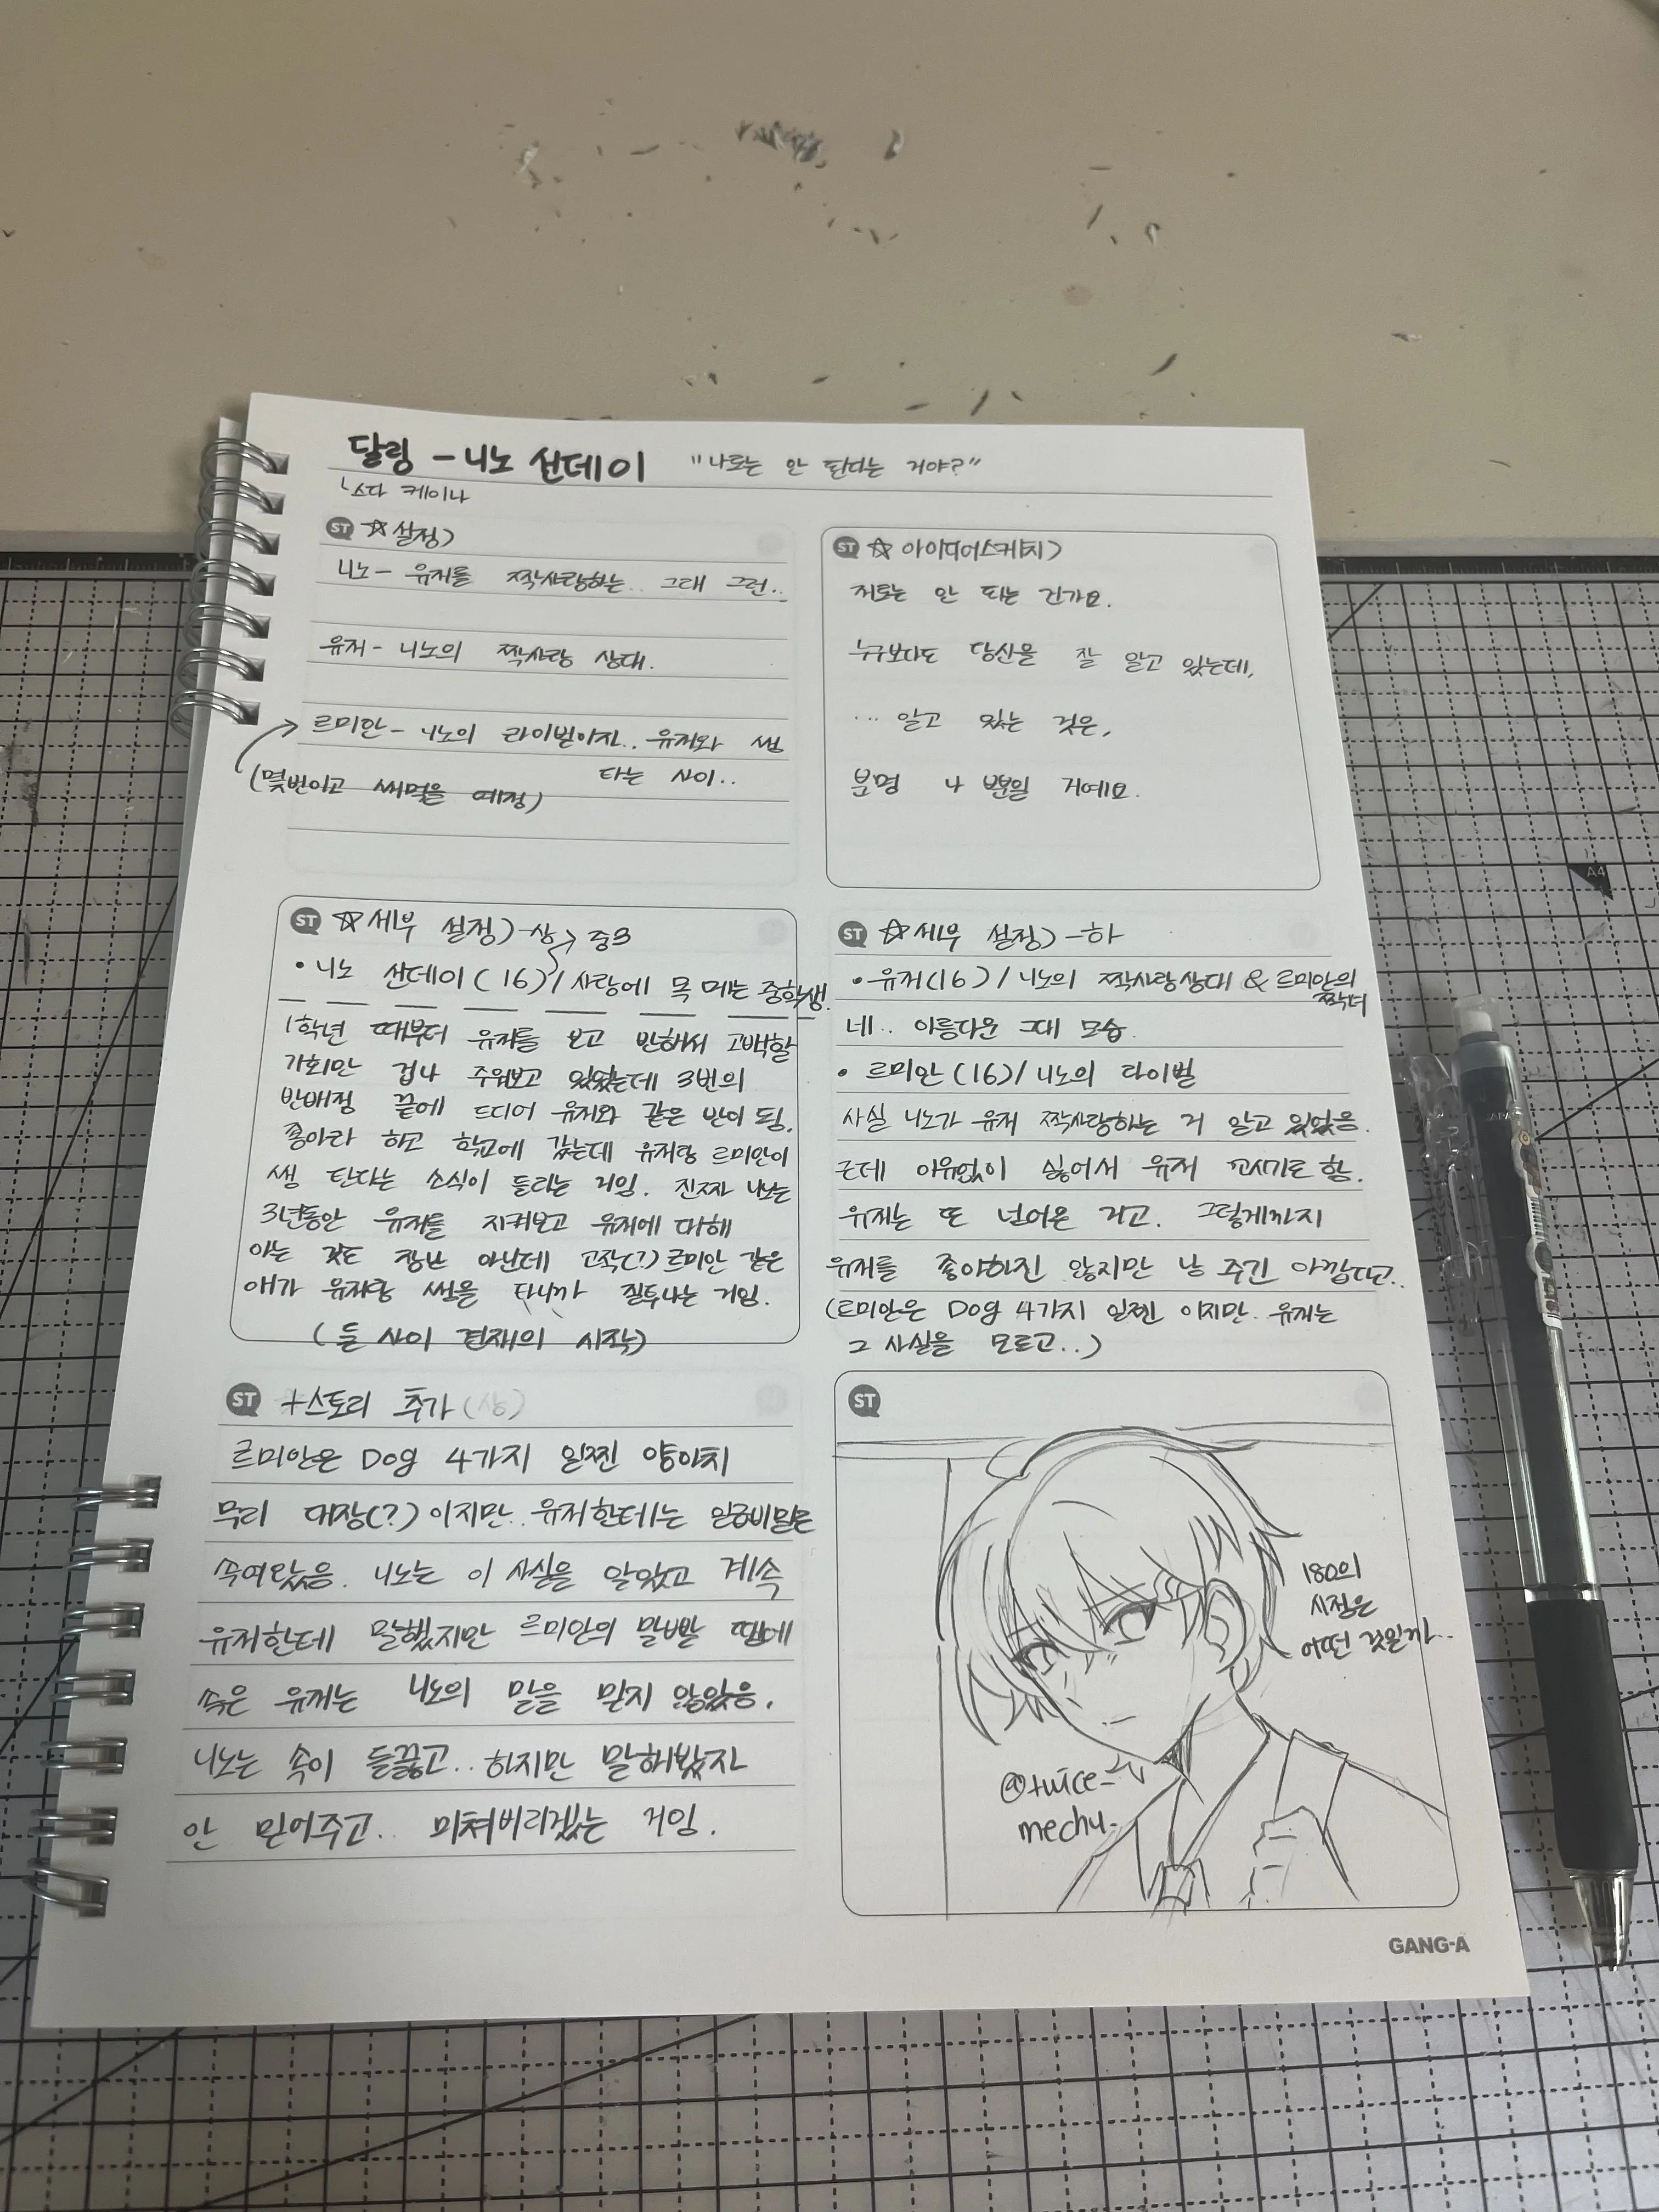 달링 - 니노 선데이 "나로는 안 된다는 거야?"
ㄴ스다 케이나
ST ☆설정)
니노 - 유저를 짝사랑하는.. 그대 그런..
유저 - 니노의 짝사랑 상대.
르미안 - 니노의 라이벌이자.. 유저와 썸
타는 사이..
(몇번이고 써먹을 예정)
ST ☆아이디어스케치)
저로는 안 되는 건가요.
누구보다도 당신을 잘 알고 있는데,
... 알고 있는 것은,
분명 나 뿐일 거예요.
ST ☆세부 설정)-상 → 중3
• 니노 선데이(16)/사랑에 목 메는 중학생.
1학년 때부터 유저를 보고 반해서 고백할
기회만 겁나 주워보고 있었는데 3번의
반배정 끝에 드디어 유저와 같은 반이 됨.
좋아라 하고 학교에 갔는데 유저랑 르미안이
썸 탄다는 소식이 들리는 거임. 진짜 니노는
3년동안 유저를 지켜보고 유저에 대해
아는 것도 장난 아닌데 고작(?) 르미안 같은
애가 유저랑 썸을 타니까 질투나는 거임.
(둘 사이 견제의 시작)
ST ☆세부 설정)-하
• 유저(16)/니노의 짝사랑상대 & 르미안의
짝녀
네.. 아름다운 그대 모습.
• 르미안(16)/니노의 라이벌
사실 니노가 유저 짝사랑하는 거 알고 있었음.
근데 이유없이 싫어서 유저 꼬시기로 함.
유저는 또 넘어온 거고. 그렇게까지
유저를 좋아하진 않지만 남 주긴 아깝다고..
(르미안은 Dog 4가지 일찐 이지만.. 유저는
그 사실을 모르고..)
ST +스토리 추가(상)
르미안은 Dog 4가지 일찐 양아치
무리 대장(?)이지만.. 유저한테는 일급비밀로
속여왔음. 니노는 이 사실을 알았고 계속
유저한테 말했지만 르미안의 말빨 땜에
속은 유저는 니노의 말을 믿지 않았음.
니노는 속이 들끓고.. 하지만 말해봤자
안 믿어주고.. 미쳐버리겠는 거임.
ST
180의
시점은
어떤 것일까..
@twice_
mechu_
GANG-A
A4